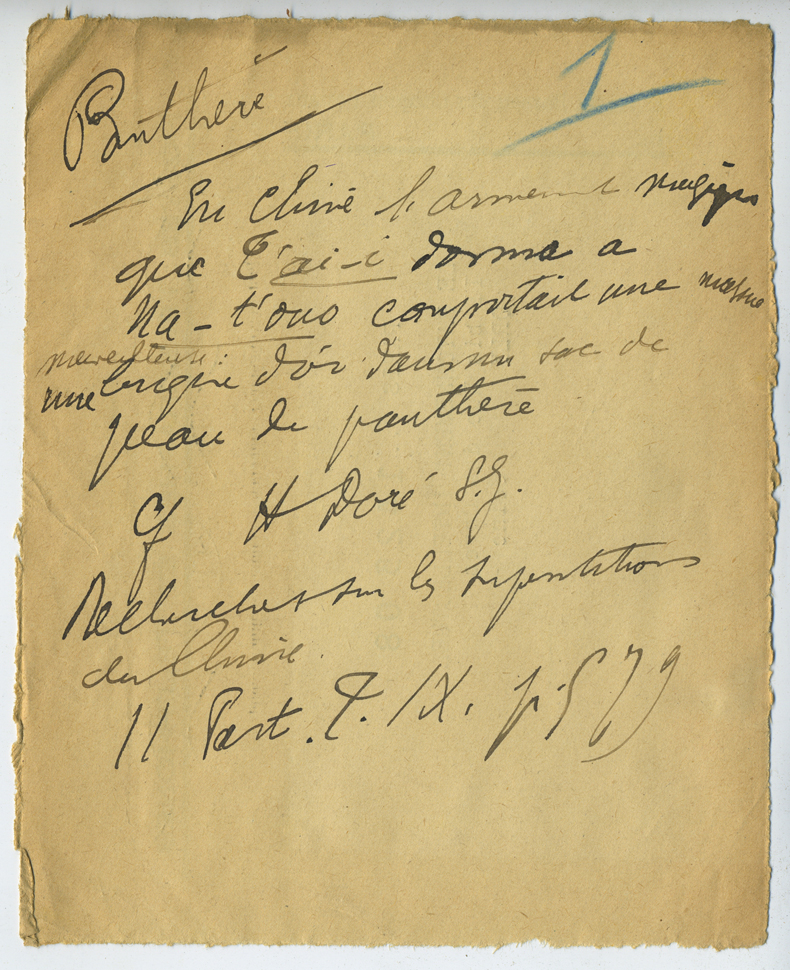 Panthère
1
En Chine l'armement magi
que T'ai-i donna a
Na-t'ouo comportait une
merveilleuse :
une brique d'or dans un sac de
peau de panthère
Cf H Doré S.J.
Recherches sur les superstitions
en Chine.
II Part. T. IX. p. 579